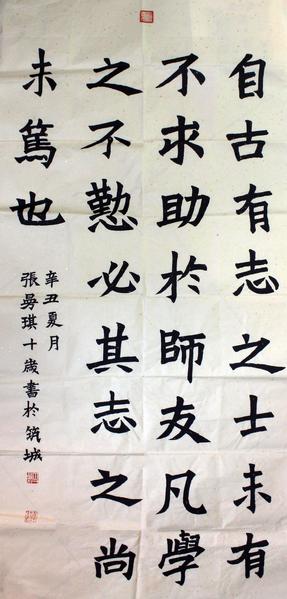 自古有志之士未有
不求助於師友凡學
之不懃必其志之尚
未篤也
辛丑夏月
張勇琪十歲書於筑城